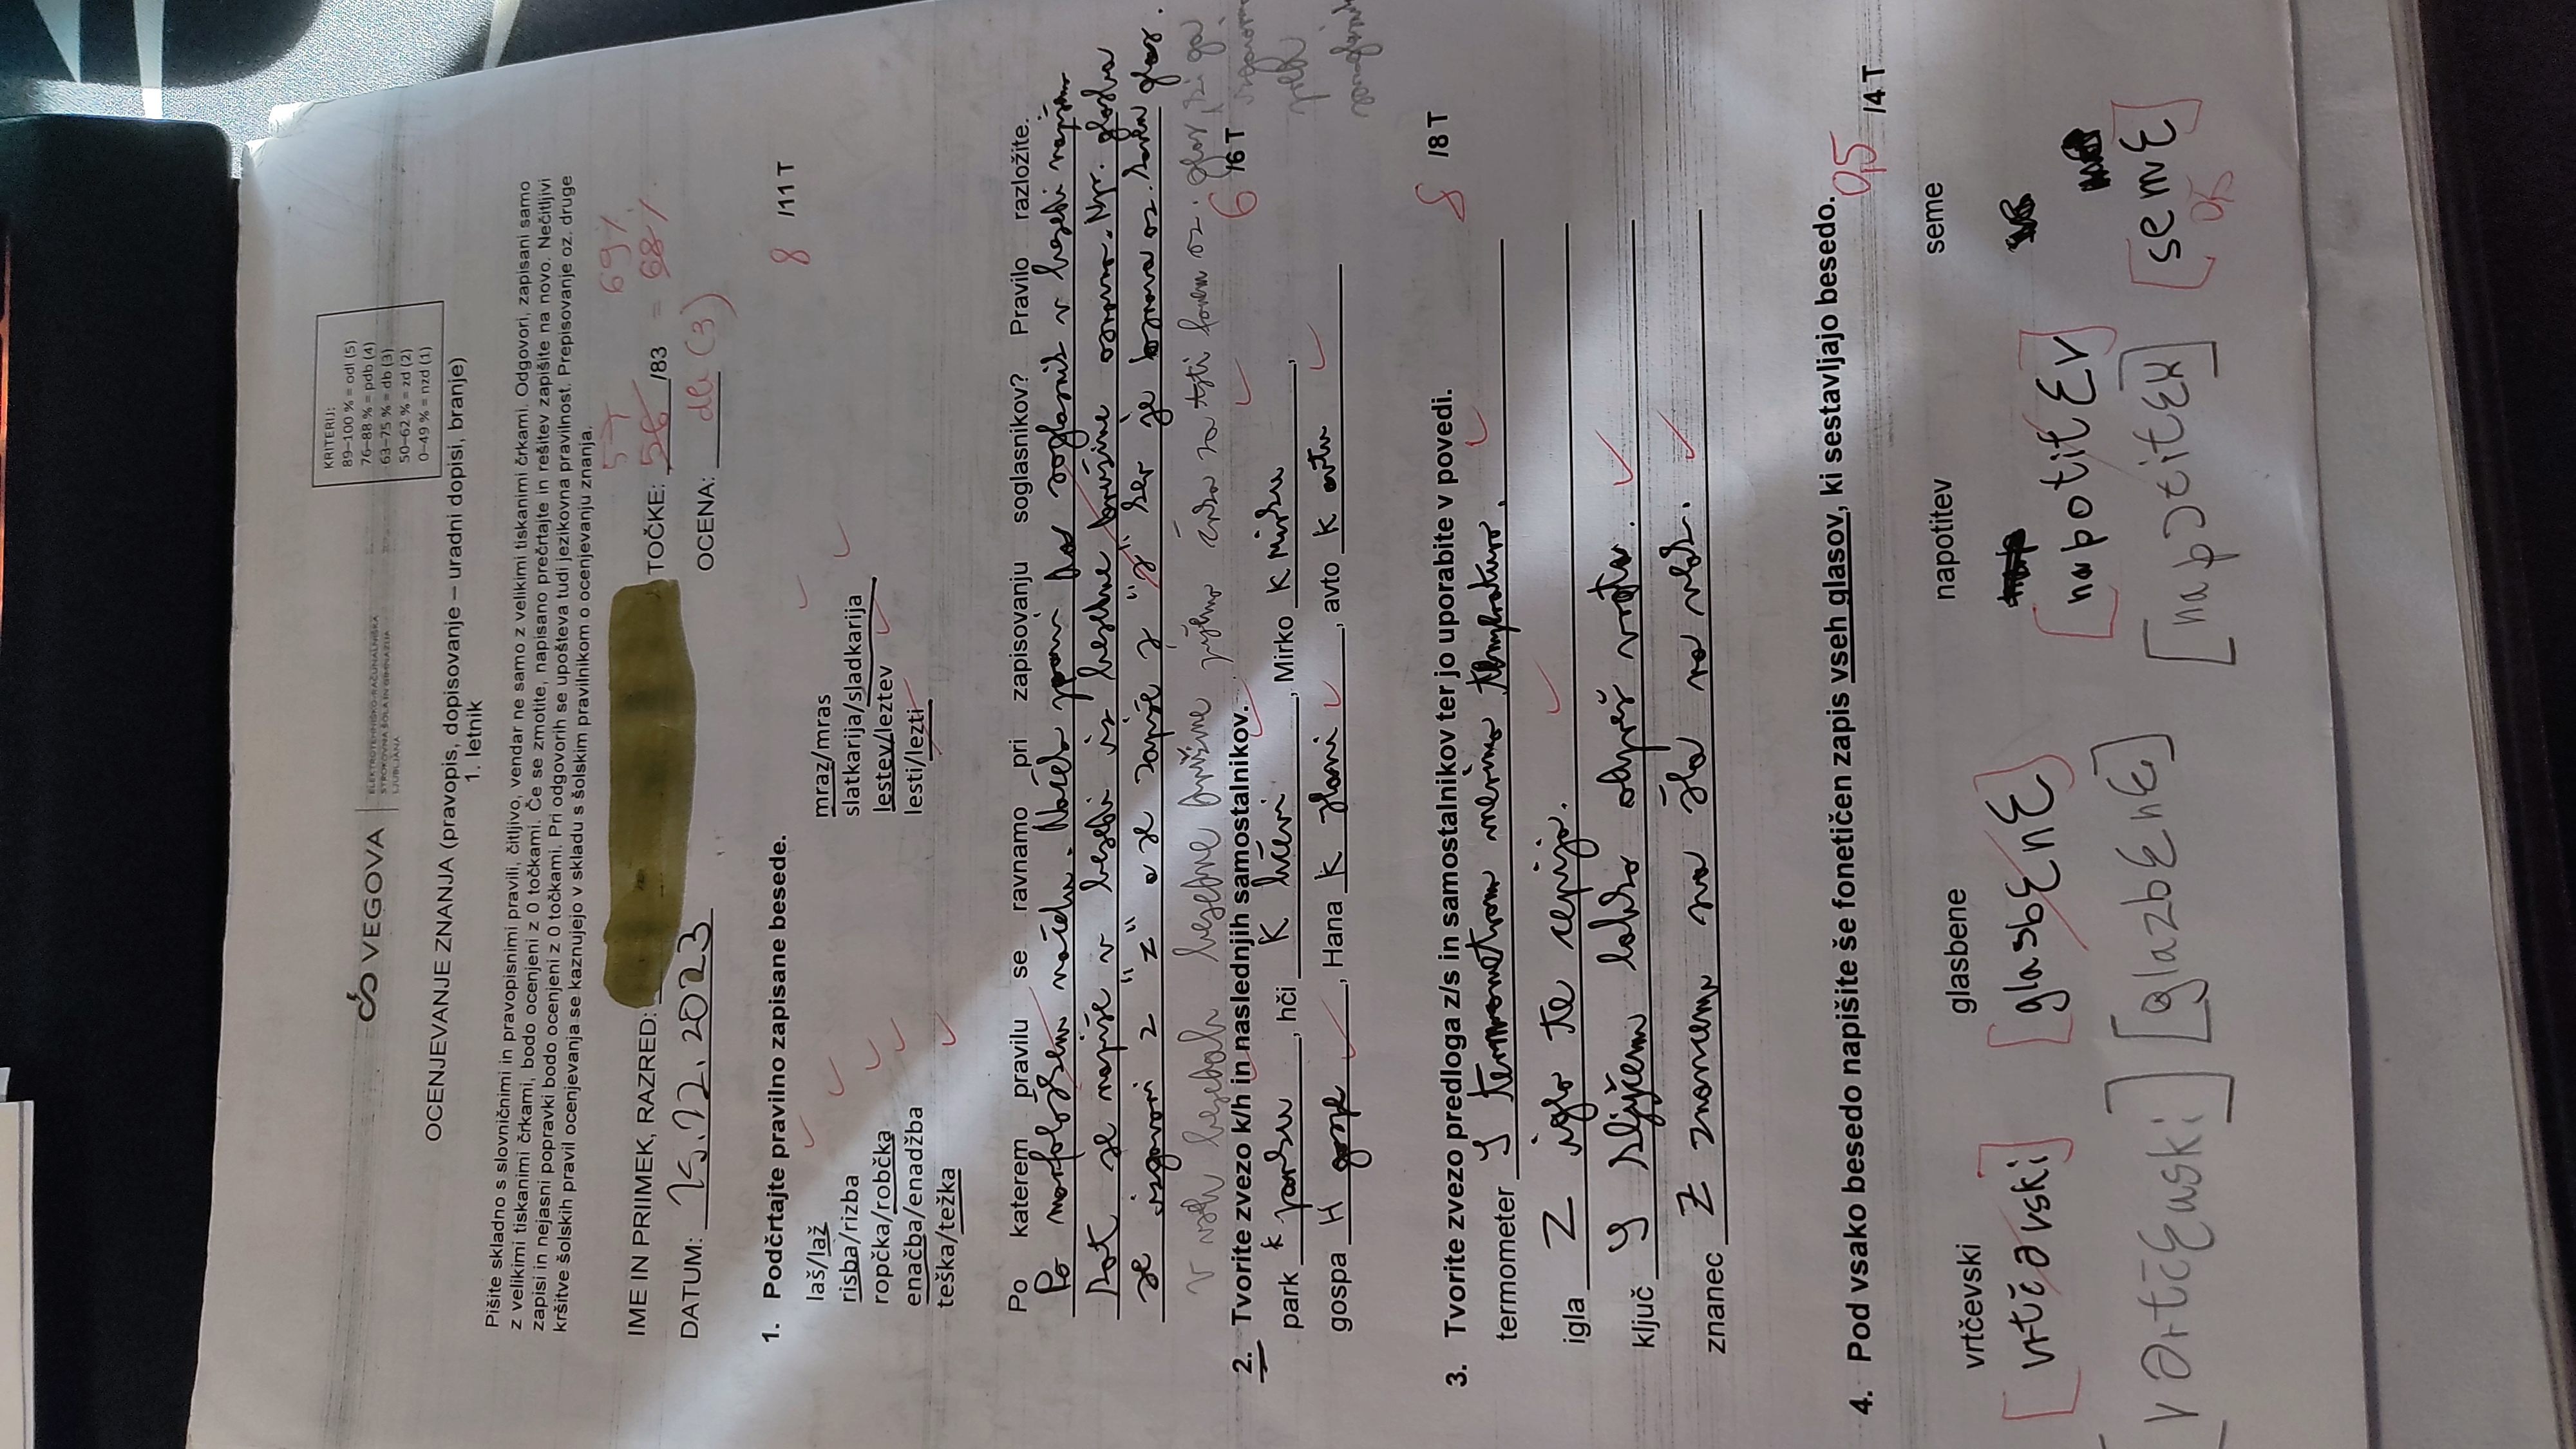 VEGOVA
ELEKTROTEHNIŠKO-RAČUNALNIŠKA
STROKOVNA ŠOLA IN GIMNAZIJA
LJUBLJANA
KRITERIJ:
89–100 % = odl (5)
76–88 % = pdb (4)
63–75 % = db (3)
50–62 % = zd (2)
0–49 % = nzd (1)
OCENJEVANJE ZNANJA (pravopis, dopisovanje – uradni dopisi, branje)
1. letnik
Pišite skladno s slovničnimi in pravopisnimi pravili, čitljivo, vendar ne samo z velikimi tiskanimi črkami. Odgovori, zapisani samo
z velikimi tiskanimi črkami, bodo ocenjeni z 0 točkami. Če se zmotite, napisano prečrtajte in rešitev zapišite na novo. Nečitljivi
zapisi in nejasni popravki bodo ocenjeni z 0 točkami. Pri odgovorih se upošteva tudi jezikovna pravilnost. Prepisovanje oz. druge
kršitve šolskih pravil ocenjevanja se kaznujejo v skladu s šolskim pravilnikom o ocenjevanju znanja.
57 69%
IME IN PRIIMEK, RAZRED: TOČKE: 56 /83 = 68%
DATUM: 15.12.2023 OCENA: db (3)
1. Podčrtajte pravilno zapisane besede. 8 /11 T
laš/laž mraz/mras
risba/rizba slatkarija/sladkarija
ropčka/robčka lestev/leztev
enačba/enadžba lesti/lezti
teška/težka
Po katerem pravilu se ravnamo pri zapisovanju soglasnikov? Pravilo razložite.
Po morfološkem načelu. Načelo pravi da soglasnik v besedi napišemo
kot se napiše v besedi iz besedne družine osnovna. Npr. glasba
se izgovori z "z" a se zapiše s "s" ker je osnova oz. koren glas.
v vseh besedah besedne družine pišemo črko za tisti fonem oz. glas, ki ga
izgovorimo
pred
2. Tvorite zvezo k/h in naslednjih samostalnikov. 6 /6 T
park k parku, hči K hčeri, Mirko K Mirku,
gospa H gospe, Hana K Hani, avto K avtu
3. Tvorite zvezo predloga z/s in samostalnikov ter jo uporabite v povedi. 8 /8 T
termometer S termometrom merimo temperaturo.
igla Z iglo te cepijo.
ključ S ključem lahko odpreš vrata.
znanec Z znancem sva šla na vlak.
4. Pod vsako besedo napišite še fonetičen zapis vseh glasov, ki sestavljajo besedo. 0,5 /4 T
vrtčevski glasbene napotitev seme
[vrtčəvski] [glasbɛnɛ] [napotitɛv] [semɛ]
[vərtčɛuski] [glazbɛnɛ] 0,5